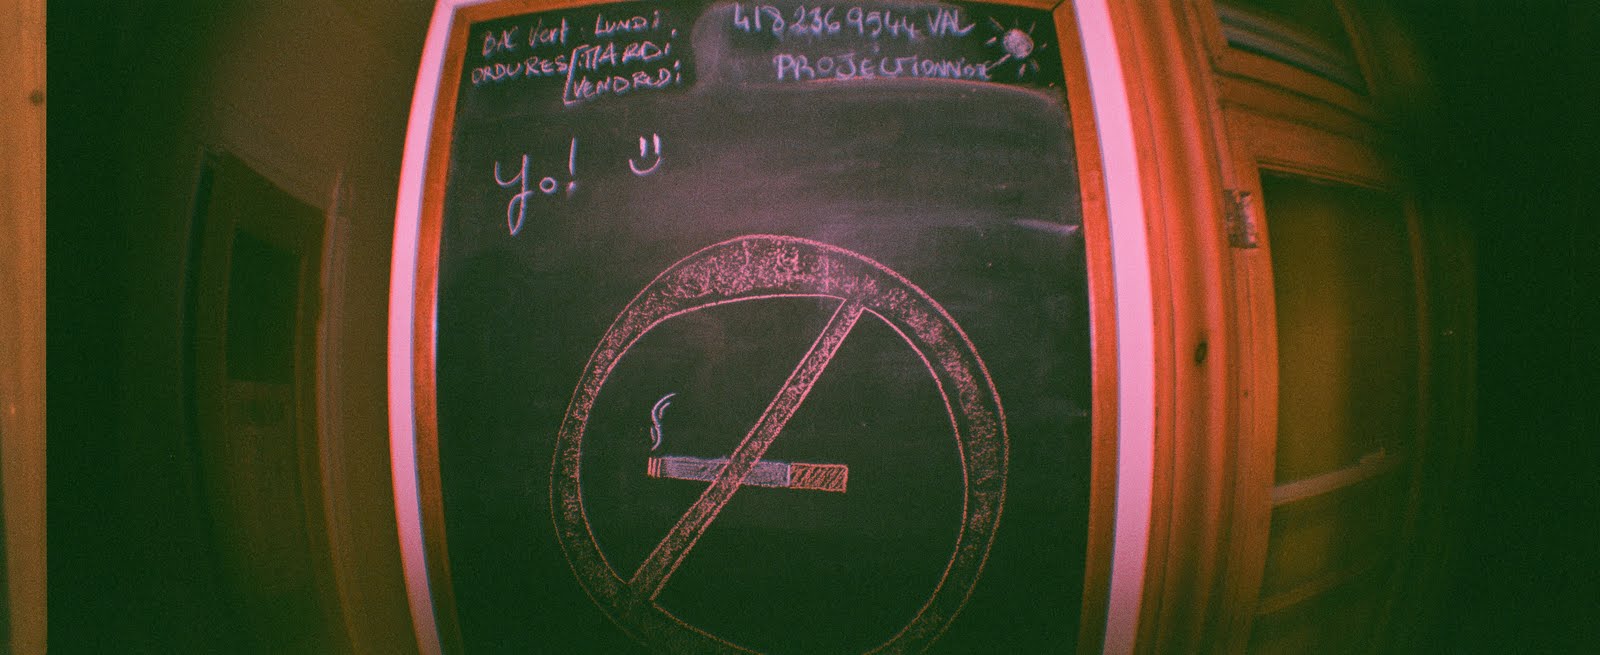 BAC Vert : LUNDI
ORDURES MARDI
VENDREDI
418 236 9544 VAL
PROJECTIONNISTE
Yo!